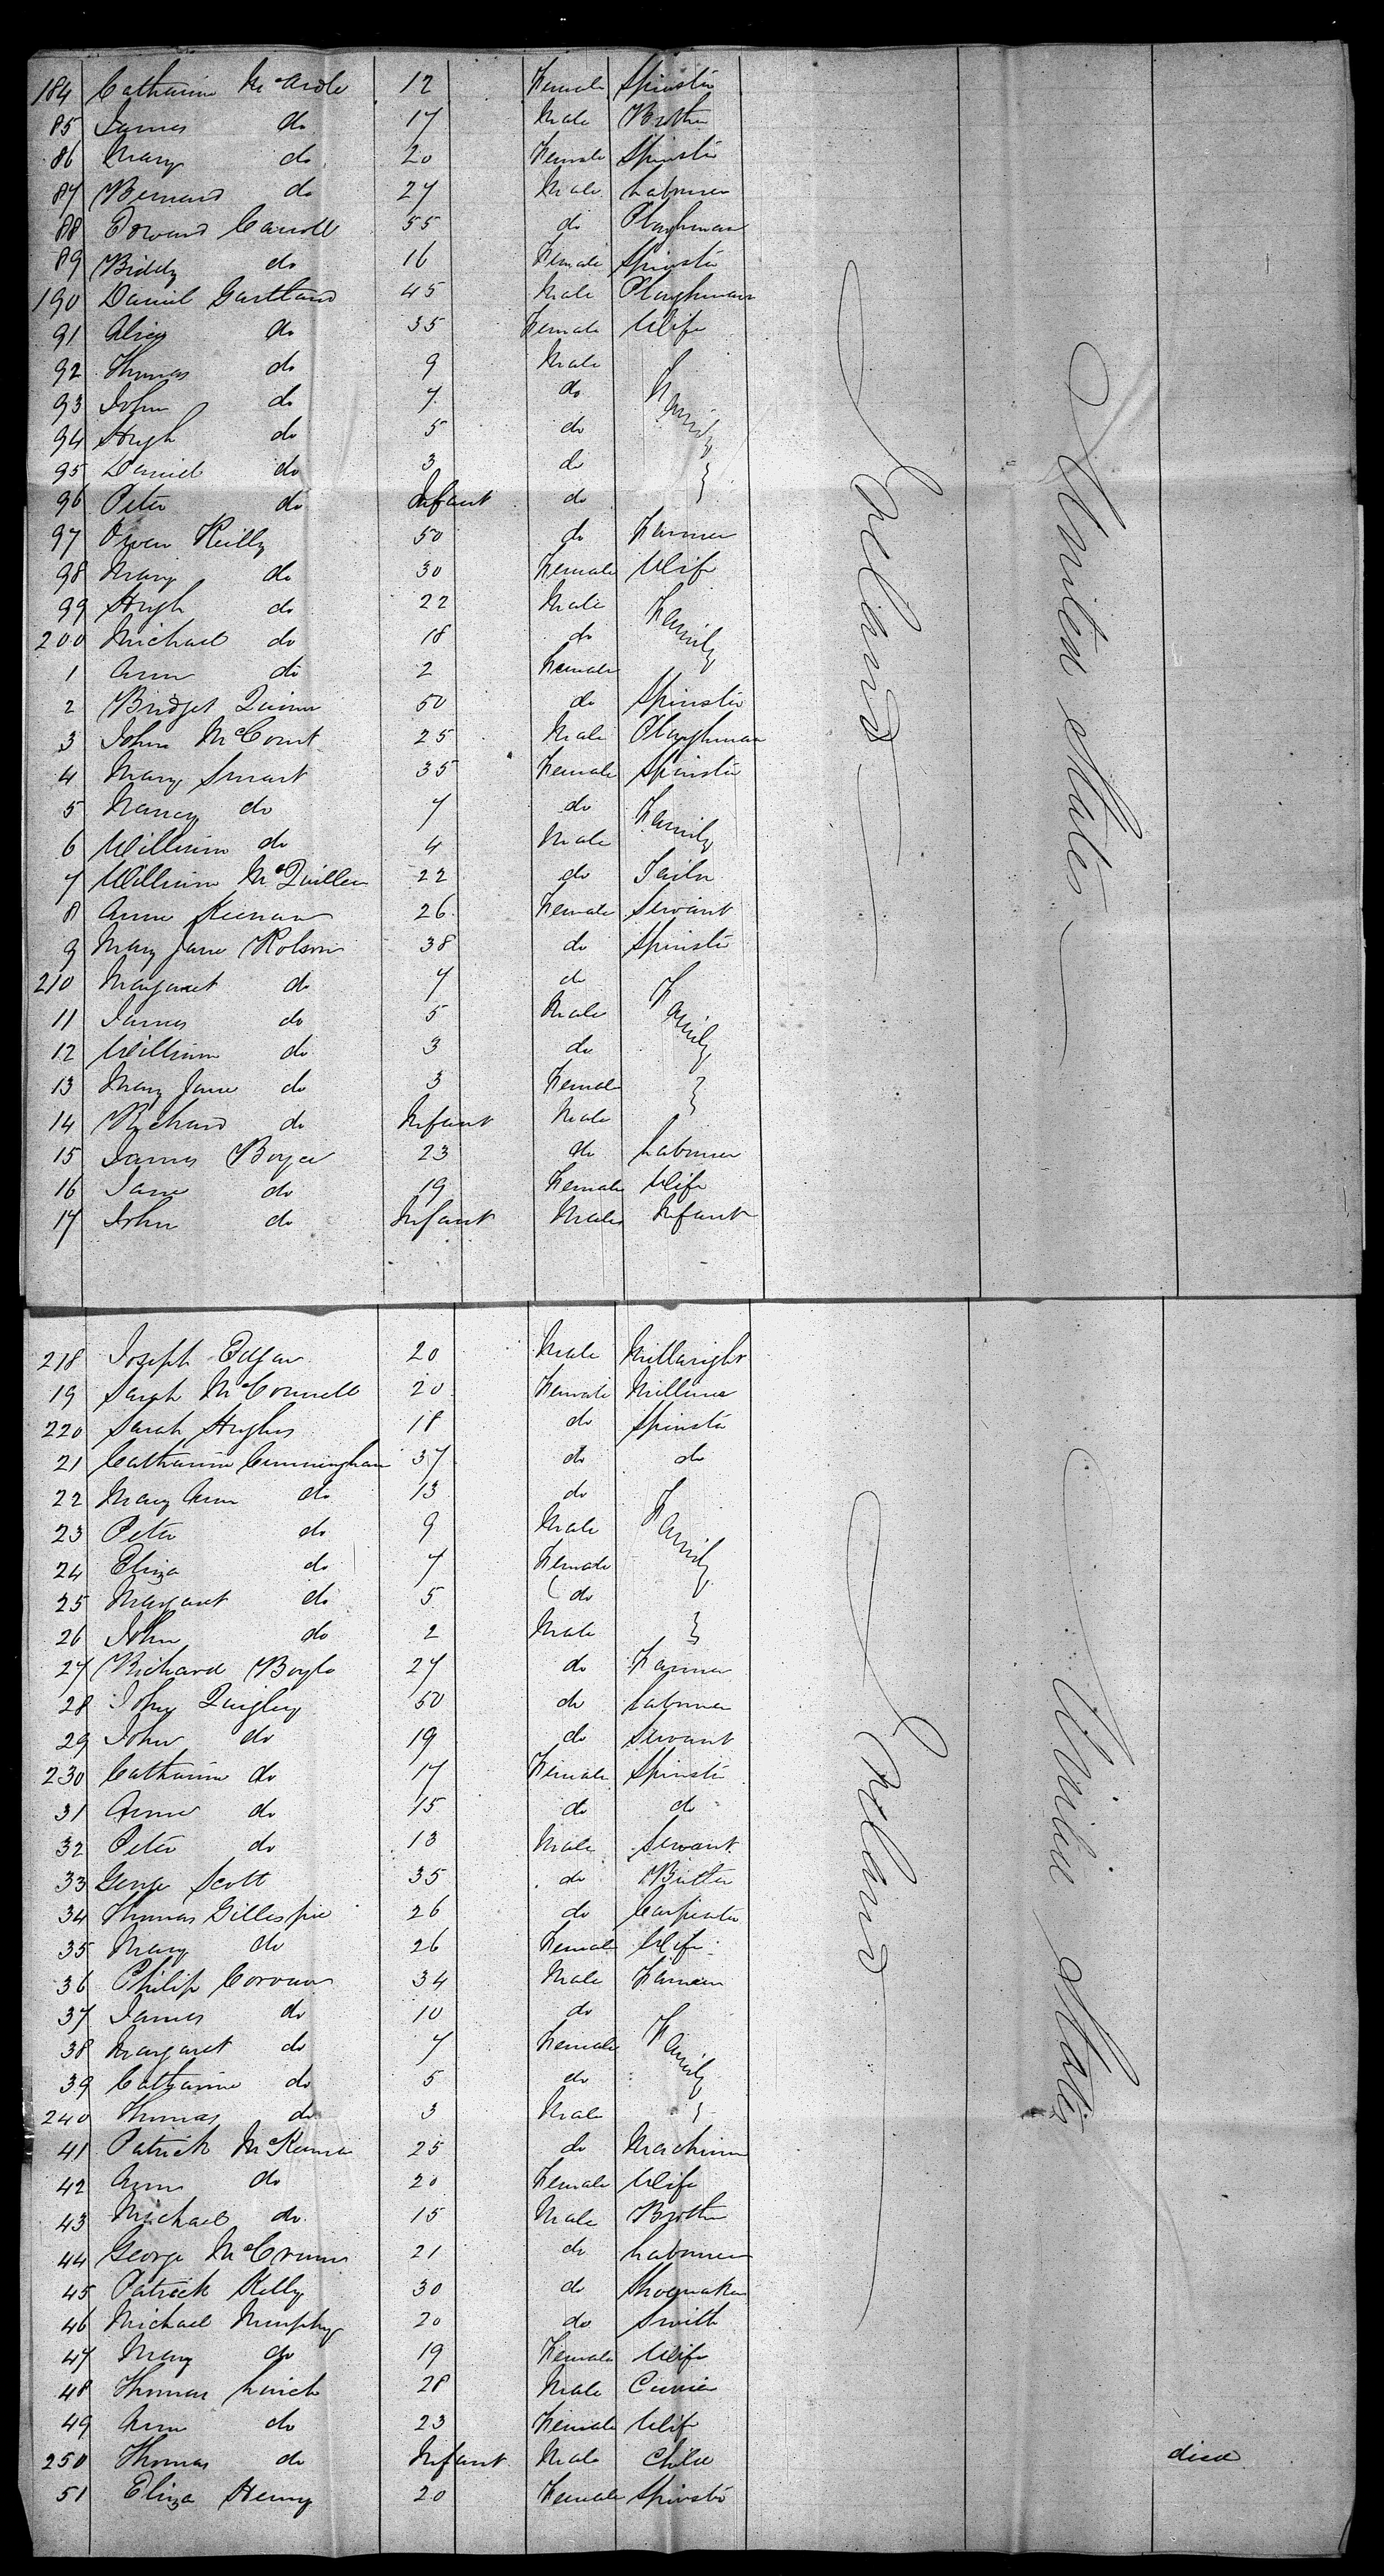 184 Catharine McArdle 12 Female Spinster
85 James do 17 Male Brother
86 Mary do 20 Female Spinster
87 Bernard do 27 Male Labourer
88 Edward Carroll 55 do Ploughman
89 Biddy do 16 Female Spinster
190 Daniel Gartland 45 Male Ploughman
91 Alice do 35 Female Wife
92 Thomas do 9 Male
93 John do 7 do Family
94 Hugh do 5 do
95 Daniel do 3 do
96 Peter do Infant do
97 Owen Reilly 50 do Farmer
98 Mary do 30 Female Wife
99 Hugh do 22 Male Family
200 Michael do 18 do
1 Ann do 2 Female
2 Bridget Quinn 50 do Spinster
3 John McCourt 25 Male Ploughman
4 Mary Smart 35 Female Spinster
5 Nancy do 7 do Family
6 William do 4 Male
7 William McQuillen 22 do Tailor
8 Anne Keenan 26 Female Servant
9 Mary Jane Rolson 38 do Spinster
210 Margaret do 7 do
11 James do 5 Male Family
12 William do 3 do
13 Mary Jane do 3 Female
14 Richard do Infant Male
15 James Boyce 23 do Labourer
16 Jane do 19 Female Wife
17 John do Infant Male Infant
Ireland
United States
218 Joseph Edgar 20 Male Millwright
19 Sarah McConnell 20 Female Milliner
220 Sarah Hughes 18 do Spinster
21 Catharine Cunningham 37 do do
22 Mary Ann do 13 do
23 Peter do 9 Male Family
24 Eliza do 7 Female
25 Margaret do 5 do
26 John do 2 Male
27 Richard Boyle 27 do Farmer
28 John Quigley 50 do Labourer
29 John do 19 do Servant
230 Catharine do 17 Female Spinster
31 Anne do 15 do do
32 Peter do 13 Male Servant
33 George Scott 35 do Butler
34 Thomas Gillespie 26 do Carpenter
35 Mary do 26 Female Wife
36 Philip Corovan 34 Male Farmer
37 James do 10 do
38 Margaret do 7 Female Family
39 Catharine do 5 do
240 Thomas do 3 Male
41 Patrick McKenna 25 do Machinist
42 Ann do 20 Female Wife
43 Michael do 15 Male Brother
44 George 21 do Labourer
45 Patrick Kelly 30 do Shoemaker
46 Michael Murphy 20 do Smith
47 Mary do 19 Female Wife
48 Thomas Linch 28 Male Currier
49 Ann do 23 Female Wife
250 Thomas do Infant Male Child died
51 Eliza Henry 20 Female Spinster
Ireland
United States